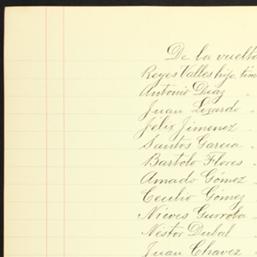 De la vuelta
Reyes Valles hijo
Antonio Díaz
Juan Lizardo
Felix Jimenez
Santos Garcia
Bartolo Flores
Amado Gómez
Cecilio Gómez
Nieves Gurrola
Nestor Dubal
Juan Chavez